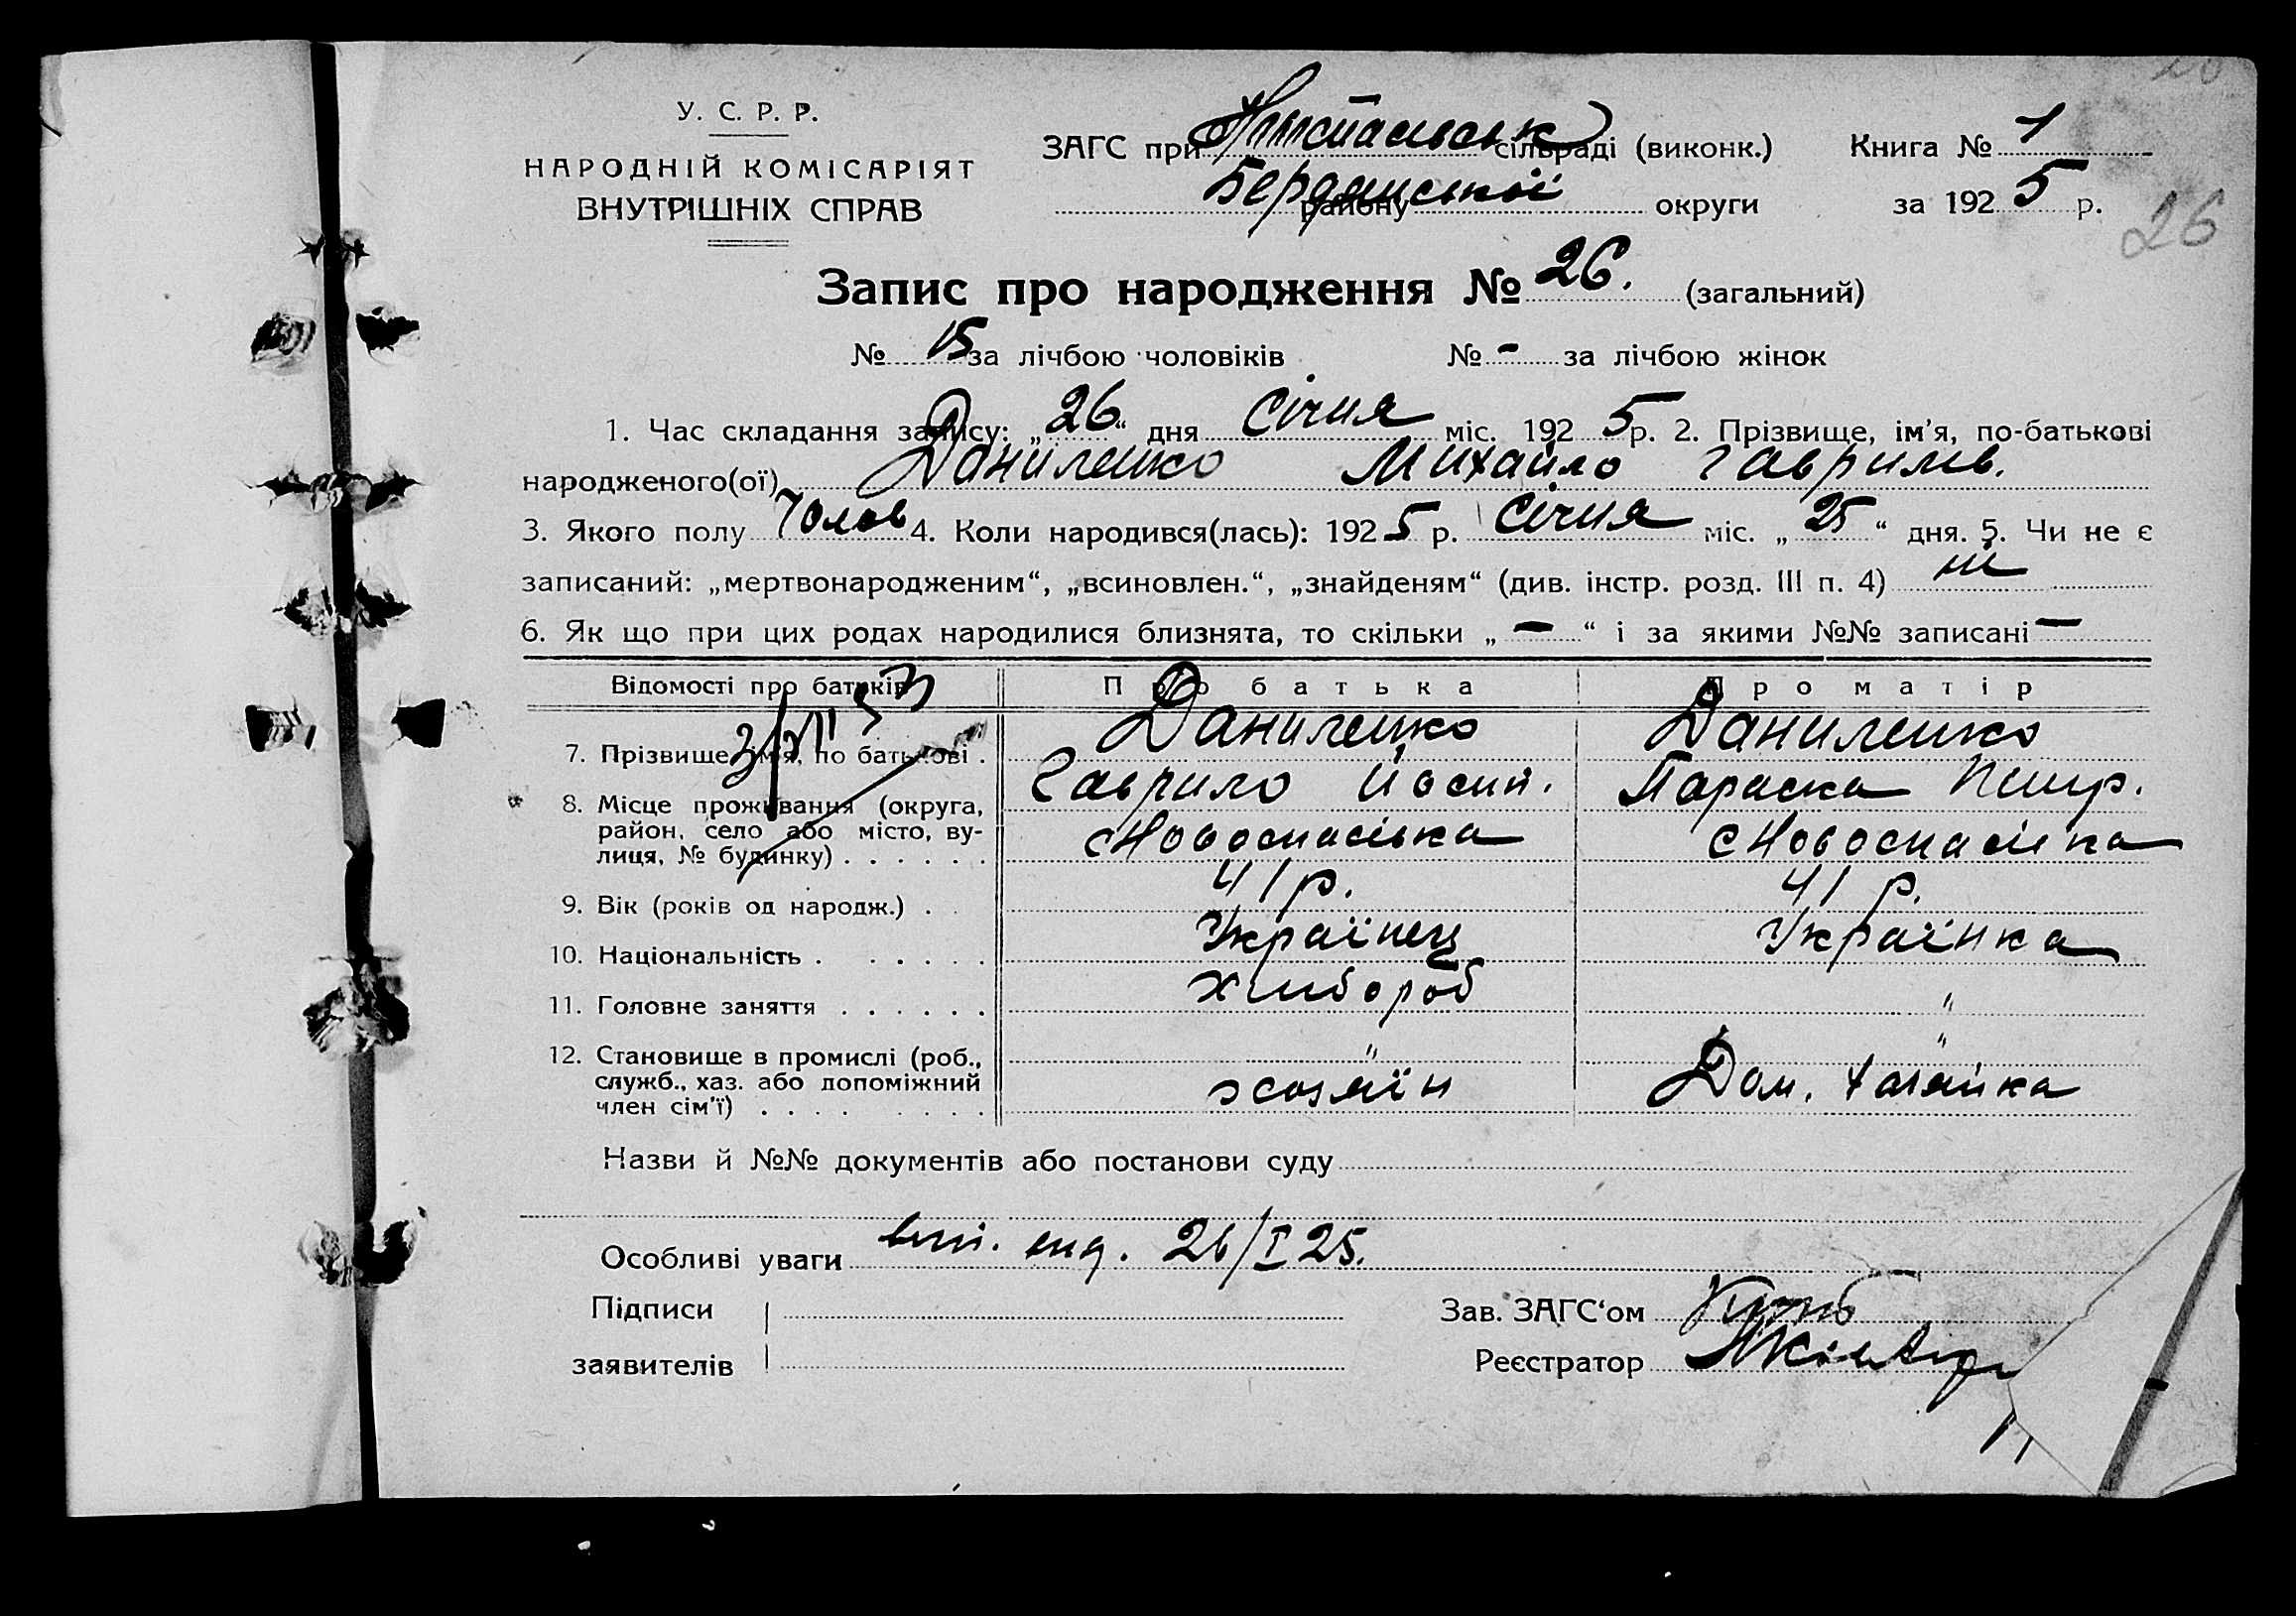 У. С. Р. Р.
НАРОДНІЙ КОМІСАРІЯТ
ВНУТРІШНІХ СПРАВ
ЗАГС при сільраді (виконк.)
Бердянської району округи
Книга № 1
за 1925 р.
26
Запис про народження № 26. (загальний)
№ 15 за лічбою чоловіків № - за лічбою жінок
1. Час складання запису: „26“ дня Січня міс. 1925 р. 2. Прізвище, ім'я, по-батькові
народженого(ої) Даниленко Михайло Гаврилів.
3. Якого полу Чолов 4. Коли народився(лась): 1925 р. Січня міс. „25“ дня. 5. Чи не є
записаний: „мертвонародженим“, „всиновлен.“, „знайденям“ (див. інстр. розд. III п. 4) ні
6. Як що при цих родах народилися близнята, то скільки „—“ і за якими №№ записані —
Відомості про батьків Про батька Про матір
7. Прізвище, ім'я, по батькові . Даниленко Даниленко
Гаврило Йосип. Параска Петр.
8. Місце проживання (округа,
район, село або місто, ву-
лиця, № будинку) . . . . . . с Новоспасівка с Новоспасівка
9. Вік (років од народж.) . . 41 р. 41 р.
10. Національність . . . . . . Українец Українка
11. Головне заняття . . . . . . хлібороб "
12. Становище в промислі (роб.,
служб., хаз. або допоміжний
член сім'ї) . . . . . . . . " хозяїн " Дом. хазяйка
Назви й №№ документів або постанови суду
Особливі уваги 26/I 25.
Підписи
заявителів
Зав. ЗАГС‘ом
Реєстратор